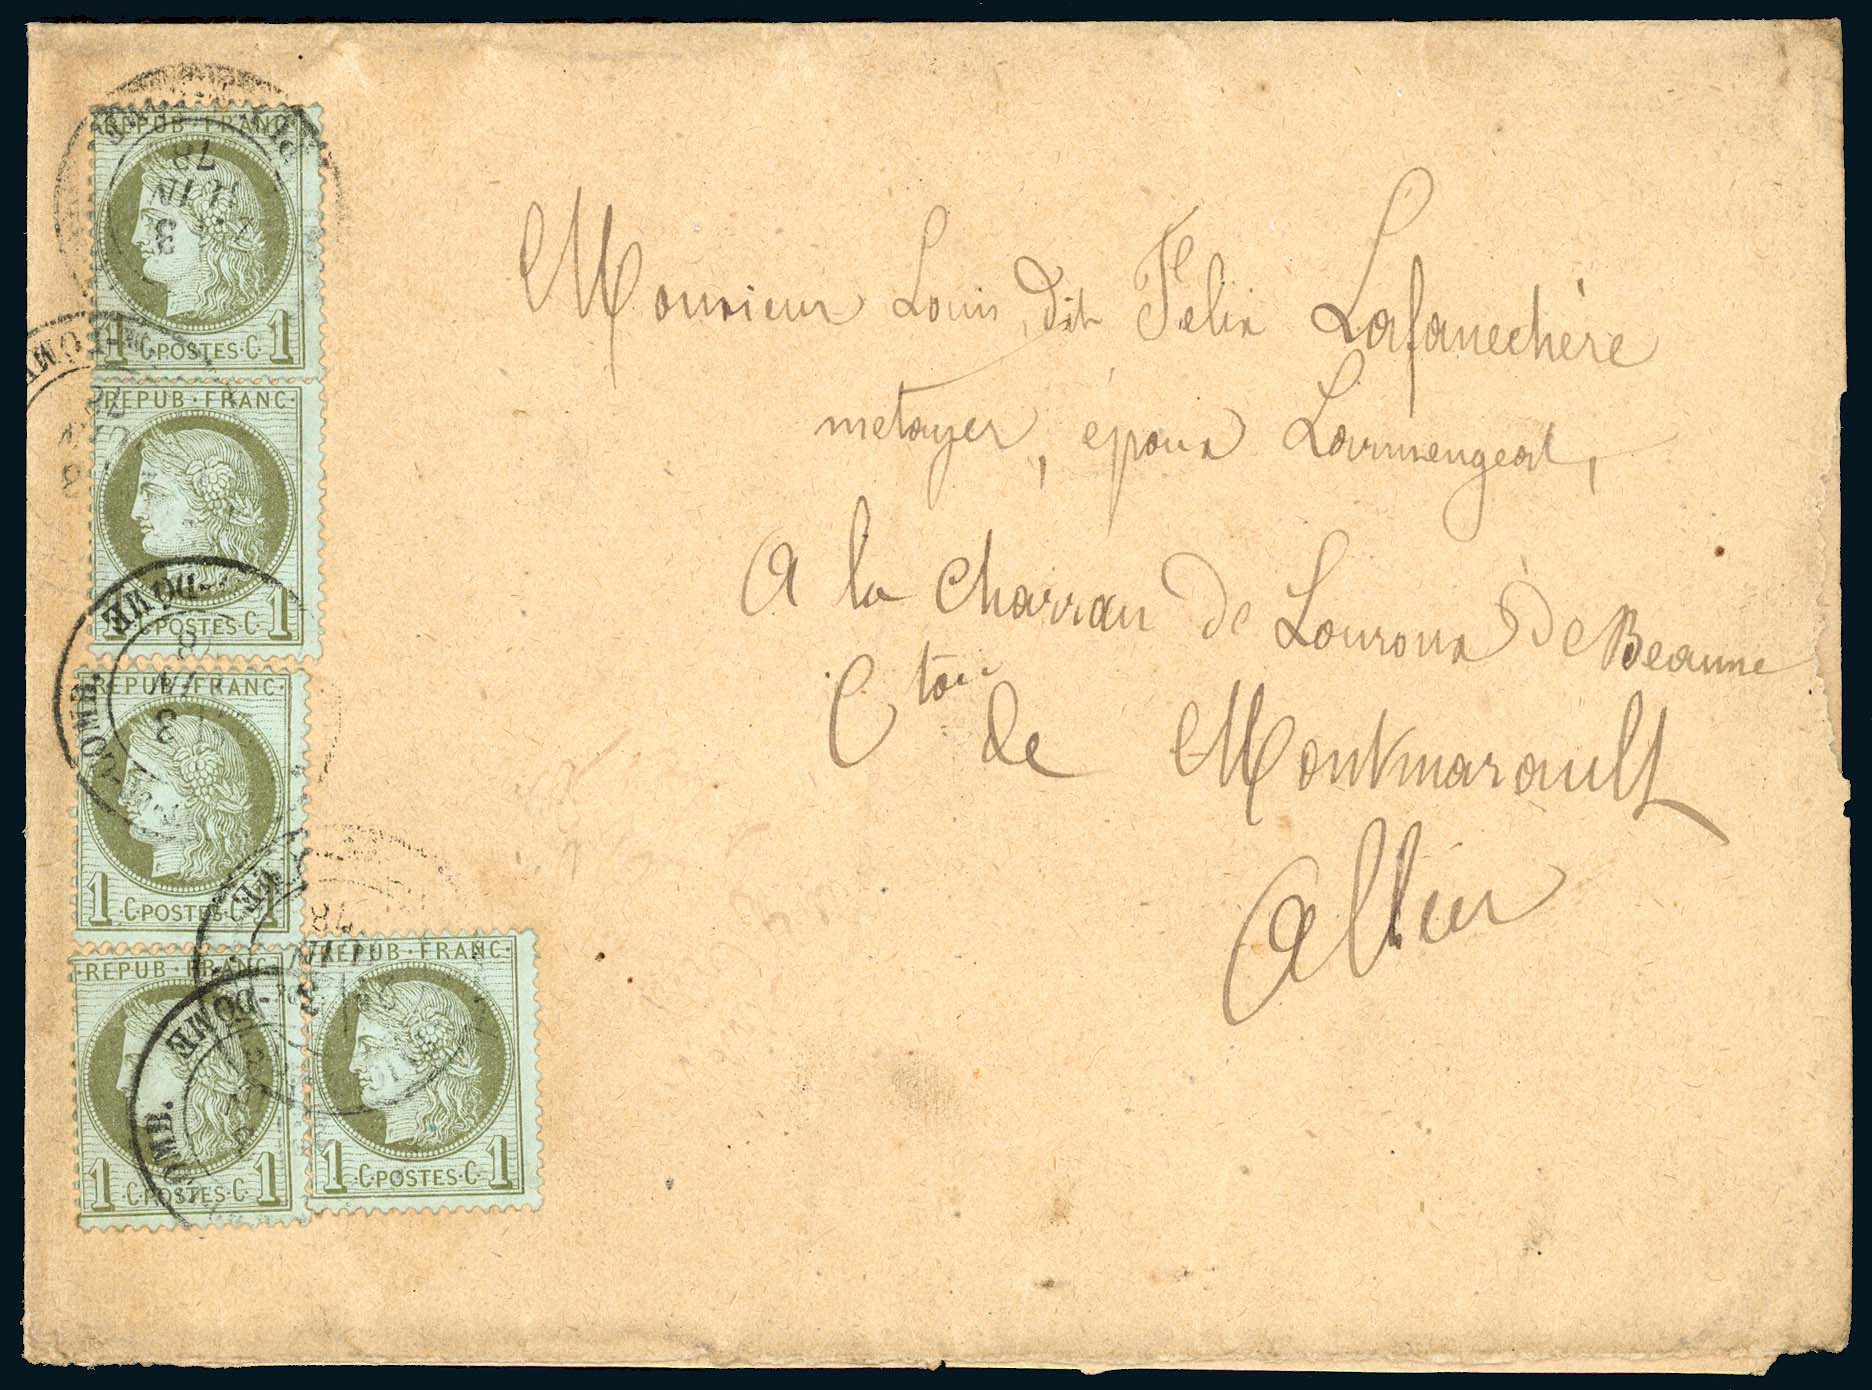 Monsieur Louis, dit Félix Lafanechère
metayer, époux Larmengeat,
A la Charrau de Louroux de Beaune
Cton de Montmarault
Allier
REPUB·FRANC
1 ·C·POSTES·C· 1
REPUB·FRANC·
1 C·POSTES·C· 1
REPUB·FRANC·
1 ·C·POSTES·C· 1
·REPUB·FRANC·
1 ·C·POSTES·C· 1
REPUB·FRANC·
1 ·C·POSTES·C· 1
3
JUIN
78
-DOME
3
78
DOME